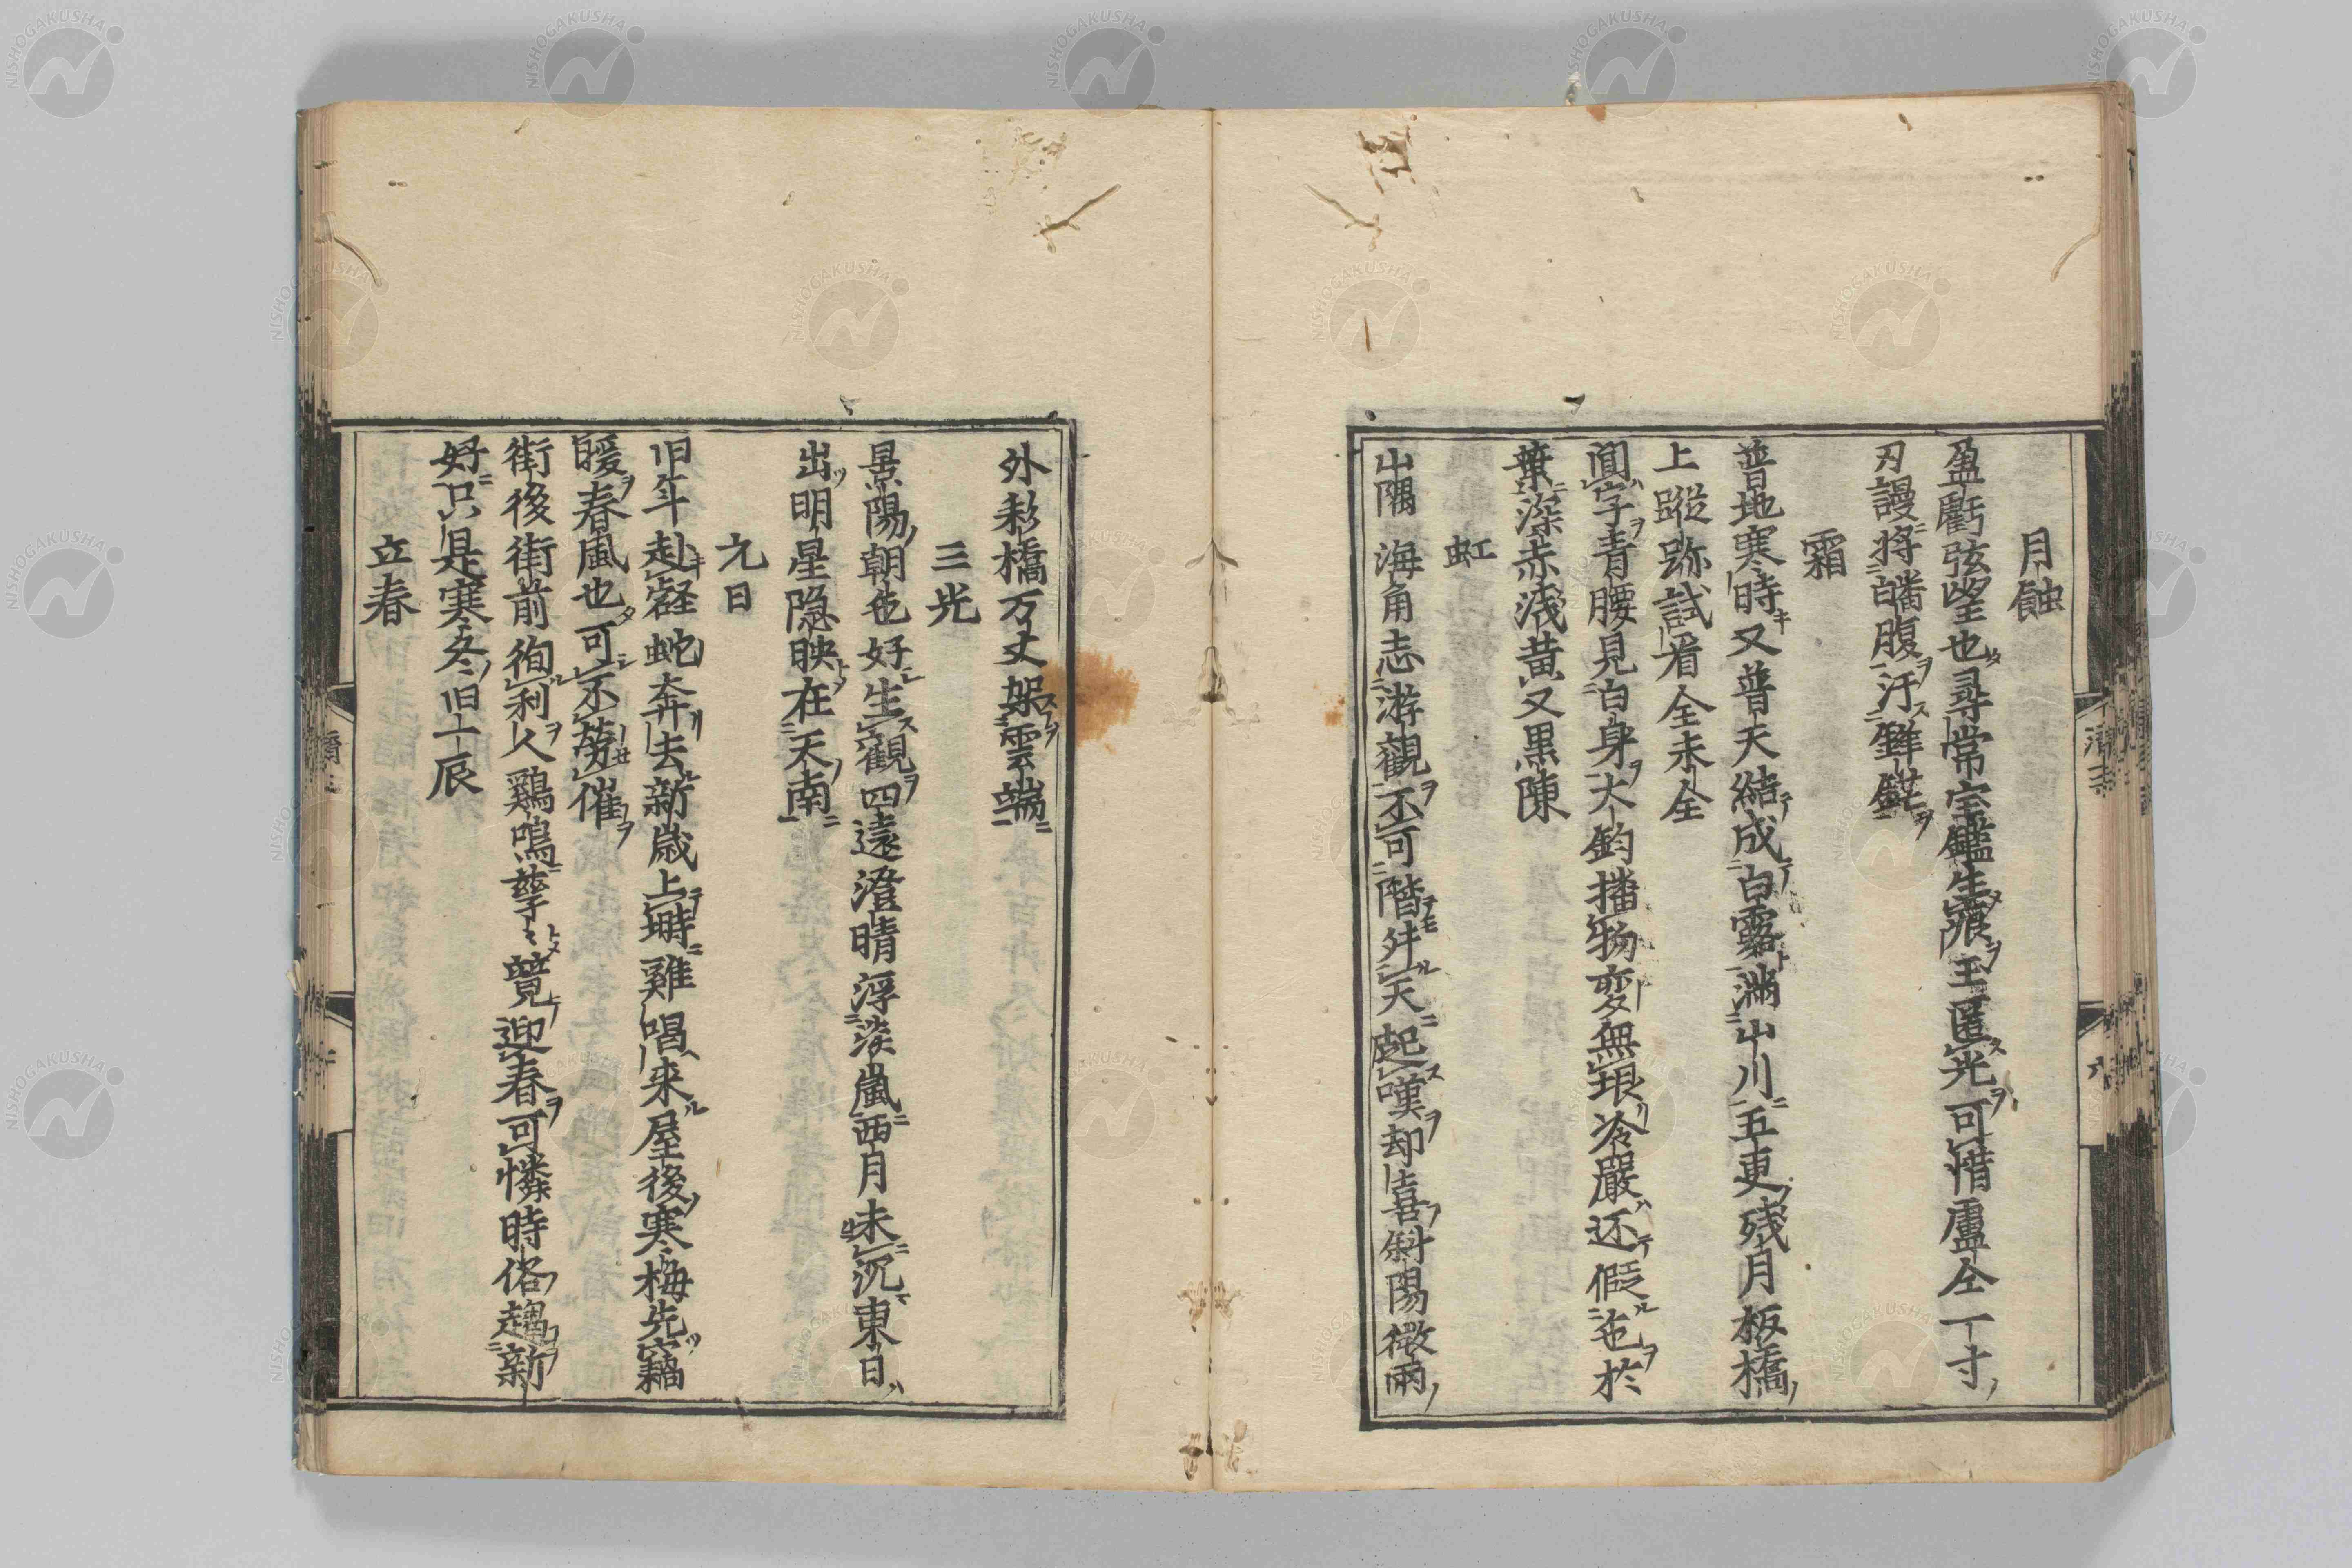 月蝕
盈虧弦望也尋常宝鑑生痕玉匿光可惜盧仝一寸
刃謾将皤腹汙鋒鋩
霜
普地寒時又普天結成白露満山川五更残月板橋
上蹤跡試看全未全
闐字青腰見白身大鈞播物変無垠冷嚴还假迤於
葉深赤浅黄又黒陳
虹
山隅海角恣游観不可階升天起嘆却喜斜陽微雨
外彩橋万丈架雲端
三光
景陽朝也好生観四遠澄晴浮淡嵐西月未沉東日
出明星隠映在天南
元日
旧年赴壑蛇奔去新歳上塒雞唱来屋後寒梅先竊
暖春風也可不労催
街後街前徇利人鷄鳴孳〻競迎春可憐時俗趨新
好只是寒冬旧十辰
立春